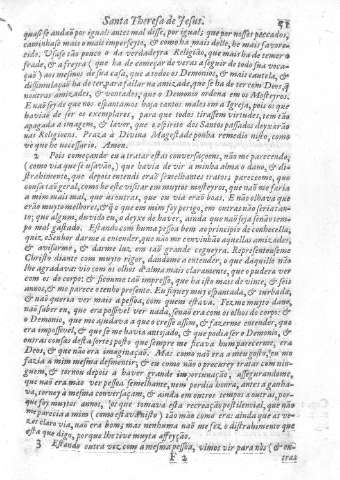 Santa Theresa de Jesus. 51
quasi se andaõ por igual: antes mal disse, por igual; que por nossos peccados,
caminhase mais o mais imperfeyto, & como ha mais delle, he mais favore-
cido. Usase tão pouco o da verdadeyra Religião, que mais ha de temer o
frade, & a freyra ( que ha de começar de veras a seguir de todo sua voca-
ção) aos mesmos de sua casa, que a todos os Demonios, & mais cautela, &
dissimulaçaõ ha de ter, para fallar na amizade, que se ha de ter com Deos, q̃
noutras amizades, & vontades, que o Demonio ordena em os Mosteyros.
E naõ sey de que nos espantamos haja tantos males em a Igreja, pois os que
haviaõ de ser os exemplares, para que todos tirassem virtudes, tem tão
apagada a imagem, & lavor, que a espirito dos Santos passados deyxarão
nas Religioens. Praza à Divina Magestade ponha remedio nisto, como
vè que he necessario. Amen.
2 Pois começando eu a tratar estas conversaçoens, não me parecendo,
( como via que se usavão, ) que havia de vir à minha alma o dano, & di-
strahimento, que depois entendi eraõ semelhantes tratos; pareceome, que
cousa taõ geral, como he este visitar em muytos mosteyros, que naõ me faria
a mim mais mal, que às outras, que eu via eraõ boas. E não olhava que
eraõ muyto melhores, & q̃ o que em mim foy perigo, em outras não seria tan-
to; que algum, duvido eu, o deyxe de haver, ainda que naõ seja senão tem-
po mal gastado. Estando com huma pessoa bem ao principio de conhecella,
quiz o Senhor darme a entender, que não me convinhão aquellas amizades,
& avisarme, & darme luz, em taõ grande cegueyra. Representouseme
Christo diante com muyto rigor, dandome a entender, o que daquillo não
lhe agradava: vio com os olhos da alma mais claramente, que o pudera ver
com os do corpo: & ficoume taõ impresso, que ha isto mais de vinte, & seis
annos, & me parece o tenho presente. Eu fiquey muy espantada, & turbada,
& naõ queria ver mais a pessoa, com quem estava. Fez me muyto dano,
não saber eu, que era possivel ver nada, senaõ era com os olhos do corpo: &
o Demonio, que me ajudava a que o cresse assim, & fazerme entender, que
era impossivel, & que se me havia antojado, & que podia ser o Demonio, &
outras cousas desta sorte; posto que sempre me ficava hum parecerme, era
Deos, & que não era imaginação. Mas como naõ era a meu gosto, eu me
fazia a mim mesma desmentir; & eu como não o procurey tratar com nin-
guem, & tornou depois a haver grande importunação, assegurandome,
que naõ era mào ver pessoa semelhante, nem perdia honra, antes a ganha-
va, torney à mesma conversaçam, & ainda em outros tempos a outras, por-
que foy muytos annos, os que tomava esta recreação pestilencial, que não
me parecia a mim ( como estava nisto ) tão mào como era: ainda que às ve-
zes claro via, naõ era bom; mas nenhuma naõ me fez o distrahimento que
esta que digo, porque lhe tive muyta affeyção.
3 Estando outra vez com a mesma pessoa, vimos vir para nòs ( & ou-
E 2 tras